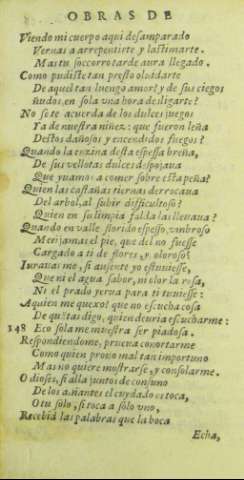 OBRAS DE
Viendo mi cuerpo aqui desamparado
Vernas a arrepentirte y lastimarte.
Mas tu soccorro tarde aura llegado.
Como pudiste tan presto oluidarte
De aquel tan luengo amor? y de sus ciegos
ñudos, en sola vna hora desligarte?
No se te acuerda de los dulces juegos
Ya de nuestra niñez: que fueron leña
Destos dañosos y encendidos fuegos?
Quando la enzina desta espessa breña,
De sus vellotas dulces despojaua
Que yuamos a comer sobre esta peña?
Quien las castañas tiernas derrocaua
Del arbol, al subir difficultoso?
Quien en su limpia falda las lleuaua?
Quando en valle florido espesso, vmbroso
Meti jamas el pie, que del no fuesse
Cargado a ti de flores, y oloroso?
Iurauas me, si ausente yo estuuiesse,
Que ni el agua sabor, ni olor la rosa,
Ni el prado yerua para ti tuuiesse:
A quien me quexo? que no escucha cosa
De quãtas digo, quien deuria escucharme:
148 Eco sola me muestra ser piadosa.
Respondiendome, prueua conortarme
Como quien prouo mal tan importuno
Mas no quiere mostrarse, y consolarme.
O dioses, si alla juntos de consuno
De los amantes el cuydado os toca,
O tu solo, si toca a solo vno,
Recebid las palabras que la boca
Echa,